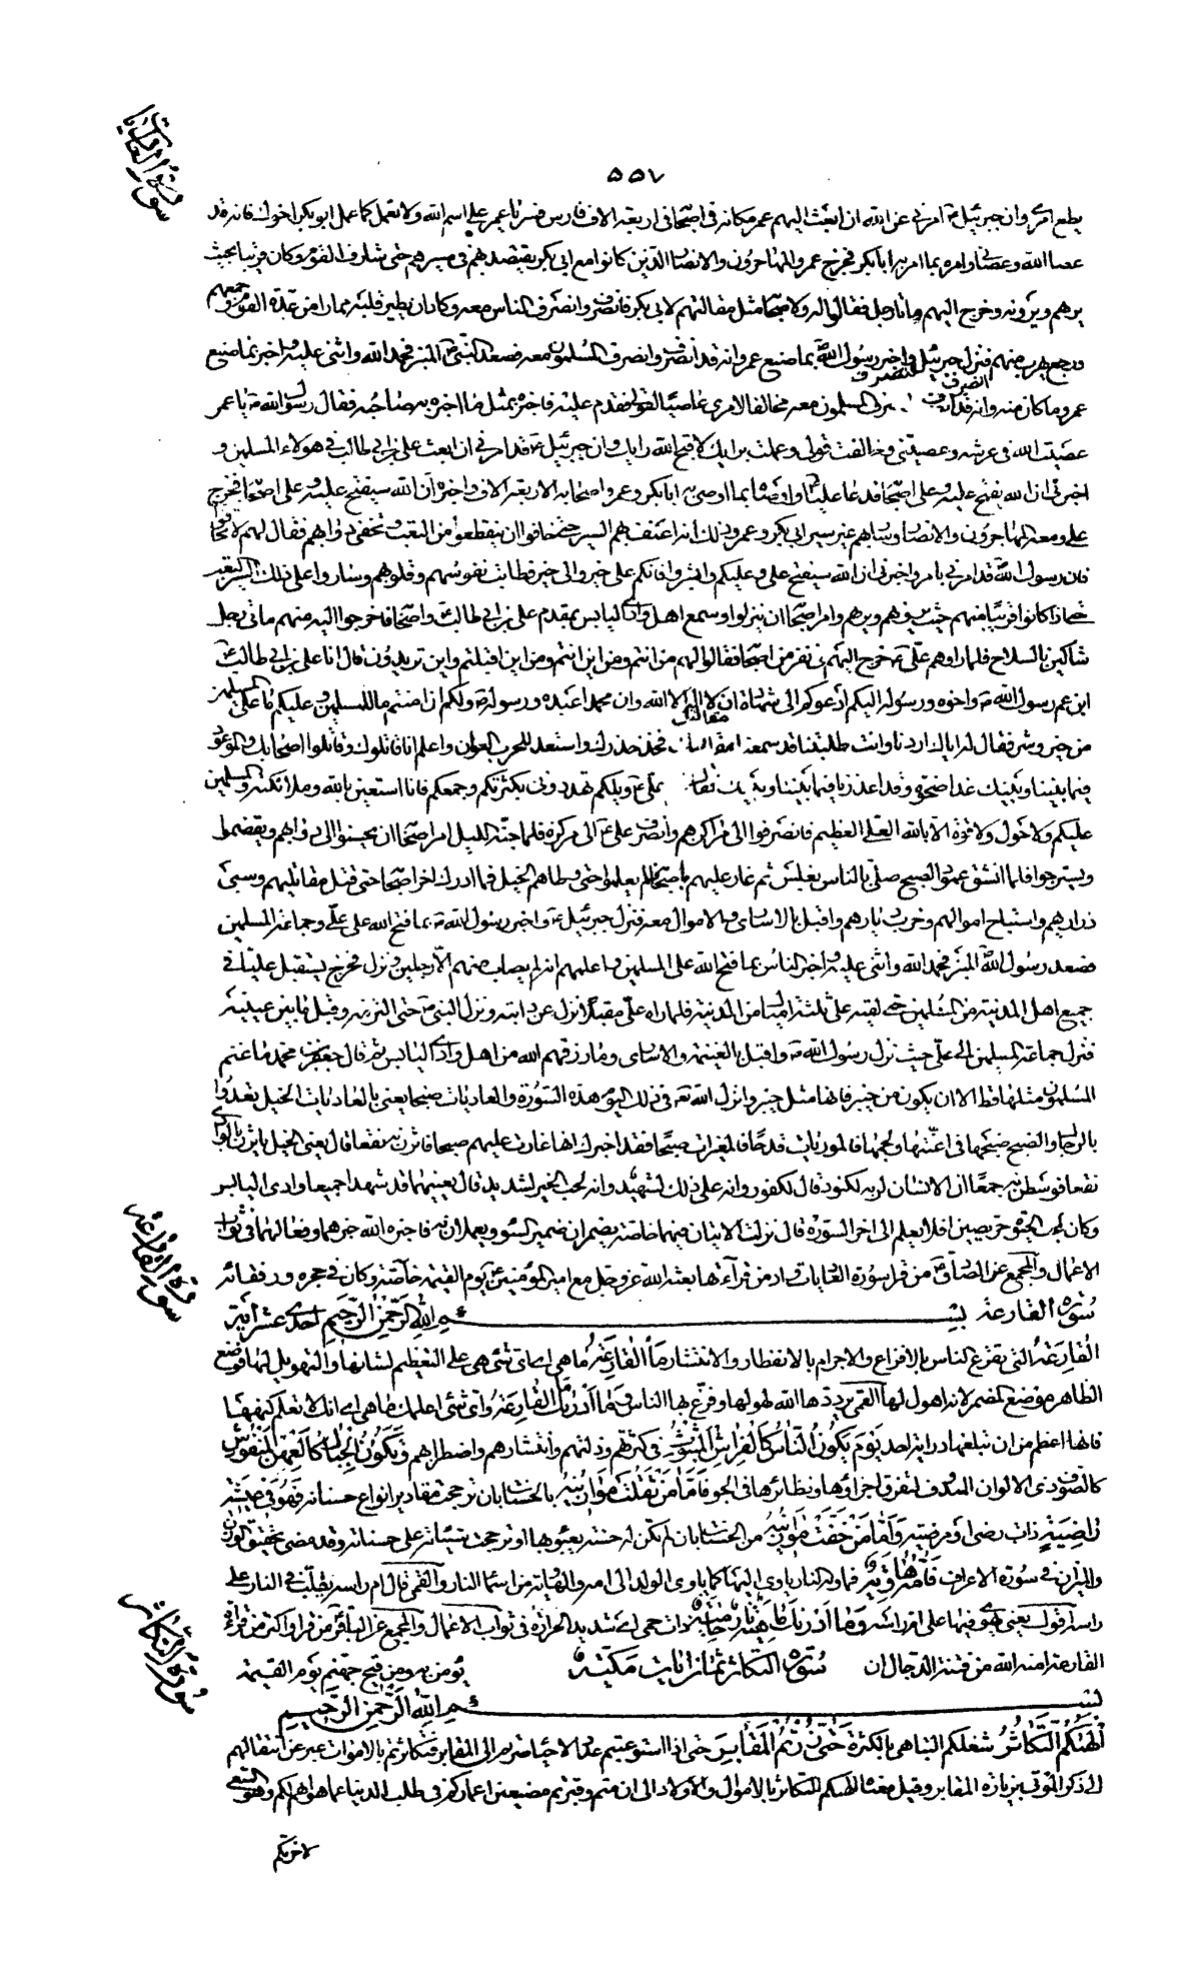 سورة العاديات
٥٥٧
يطع امري وان جبرئيل ع امرني عن الله ان ابعث اليهم عمر مكانه في اصحابه في اربعة الاف فارس فسر يا عمر على اسم الله ولا تعمل كما عمل ابو بكر اخوك فانه قد
عصا الله وعصاني وامره بما امر به ابا بكر فخرج عمر والمهاجرون والانصار الذين كانوا مع ابي بكر يقتصد بهم في مسيرهم حتى شارف القوم وكان قريبا بحيث
يرهم ويرونه وخرج اليهم مائتا رجل فقالوا له ولاصحابه مثل مقالتهم لابي بكر فانصرف وانصرف الناس معه وكاد ان يطير قلبه مما راى من عدة القوم وجمعهم
ورجع يهرب منهم فنزل جبرئيل واخبر رسول الله بما صنع عمر وانه قد انصرف وانصرف المسلمون معه فصعد النبي ص المنبر فحمد الله واثنى عليه واخبر بما صنع
عمر وما كان منه وانه قد انصرف المسلمون معه مخالفا لامري عاصيا لقولي فقدم عليه فاخبره بمثل ما اخبره به صاحبه فقال رسول الله ص يا عمر
عصيت الله في عرشه وعصيتني وخالفت قولي وعملت برايك لا قبح الله رايك وان جبرئيل ع قد امرني ان ابعث علي بن ابي طالب في هؤلاء المسلمين و
اخبرني ان الله يفتح عليه وعلى اصحابه فدعا عليا ع واوصاه بما اوصى به ابا بكر وعمر واصحابه الاربعة الاف واخبره ان الله سيفتح عليه وعلى اصحابه فخرج
علي ومعه المهاجرون والانصار وسار بهم غير سير ابي بكر وعمر وذلك انه اعنف بهم السير حتى خافوا ان ينقطعوا من التعب وتحفى دوابهم فقال لهم لا تخافوا
فان رسول الله قد امرني بامر واخبرني ان الله سيفتح علي وعليكم وابشروا فانكم على خير والى خير فطابت نفوسهم وقلوبهم وساروا على ذلك السير والتعب
حتى اذا كانوا قريبا منهم حيث يرونهم ويراهم وامر اصحابه ان ينزلوا وسمع اهل وادي اليابس بمقدم علي بن ابي طالب ع واصحابه فاخرجوا اليه منهم مائتي رجل
شاكين بالسلاح فلما راهم علي ع خرج اليهم في نفر من اصحابه فقالوا لهم من انتم ومن اين انتم ومن اين اقبلتم واين تريدون قال انا علي بن ابي طالب ع
ابن عم رسول الله ص واخوه ورسوله اليكم ادعوكم الى شهادة ان لا اله الا الله وان محمدا عبده ورسوله ص ولكم ان امنتم ما للمسلمين وعليكم ما على المسلمين
من خير وشر فقالوا له اياك اردنا وانت طلبتنا قد سمعنا مقالتك فخذ حذرك واستعد للحرب العوان واعلم انا قاتلوك وقاتلوا اصحابك والموعود
فيما بيننا وبينك غدا ضحوة وقد اعذرنا فيما بيننا وبينك فقال علي ع ويلكم تهددوني بكثرتكم وجمعكم فانا استعين بالله وملائكته والمسلمين
عليكم ولا حول ولا قوة الا بالله العلي العظيم فانصرفوا الى مراكزهم وانصرف علي ع الى مركزه فلما جنه الليل امر اصحابه ان يحسنوا الى دوابهم ويقضموا
ويسرجوا فلما انشق عمود الصبح صلى بالناس بغلس ثم غار عليهم باصحابه فلم يعلموا حتى وطاهم الخيل فما ادرك اخر اصحابه حتى قتل مقاتليهم وسبى
ذراريهم واستباح اموالهم وخرب ديارهم واقبل بالاسارى والاموال معه فنزل جبرئيل ع واخبر رسول الله ص بما فتح الله على علي وجماعة المسلمين
فصعد رسول الله المنبر فحمد الله واثنى عليه واخبر الناس بما فتح الله على المسلمين واعلمهم انه لم يصاب منهم الا رجلين ونزل فخرج يستقبل عليا في
جميع اهل المدينة من المسلمين حتى لقيه على ثلثة اميال من المدينة فلما راه علي مقبلا نزل عن دابته ونزل النبي ص حتى التزمه وقبل ما بين عينيه
فنزل جماعة المسلمين الى علي حيث نزل رسول الله ص واقبل بالغنيمة والاسارى وما رزقهم الله من اهل وادي اليابس ثم قال جعفر بن محمد ما غنم
المسلمون مثلها قط الا ان يكون من خيبر فانها مثل خيبر وانزل الله تع في ذلك اليوم هذه السورة والعاديات ضبحا يعني بالعاديات الخيل تعدوا
بالرجال والضبح ضبحها في اعنتها ولجمها فالموريات قدحا فالمغيرات صبحا فقد اخبرك انها غارت عليهم صبحا فاثرن به نقعا قال يعني الخيل ياثرن بالوادي
نقعا فوسطن به جمعا ان الانسان لربه لكنود قال لكفور وانه على ذلك لشهيد وانه لحب الخير لشديد قال يعنيهما قد شهدا جميعا وادي اليابس
وكانا لحب الحيوة حريصين افلا يعلم الى اخر السورة قال نزلت الايتان فيهما خاصة يضمران ضمير السوء ويعملان به فاخبره الله خبرهما وفعالهما في ثواب
الاعمال والمجمع عن الصادق ع من قرأ سورة العاديات وادمن قرآءتها بعثه الله عز وجل مع امير المؤمنين ع يوم القيمة خاصة وكان في حجره ورفقائه
سورة القارعة
سورة القارعة بسم الله الرحمن الرحيم احدى عشر اية
القارعة التي تقرع الناس بالافزاع والاجرام بالانفطار والانتشار ما القارعة ما هي اي اي شئ هي على التعظيم لشانها والتهويل لها فوضع
الظاهر موضع المضمر لانه اهول لها القمي يرددها الله لهولها وفزع بها الناس وما ادريك ما القارعة واي شئ اعلمك ما هي اي انك لا تعلم كنهها
فانها اعظم من ان تبلغها دراية احد يوم يكون الناس كالفراش المبثوث في كثرتهم وذلتهم وانتشارهم واضطرابهم وتكون الجبال كالعهن المنفوش
كالصوف ذي الالوان المندوف لتفرق اجزائها وتطائرها في الجو فاما من ثقلت موازينه بالحسنات بان ترجحت مقادير انواع حسناته فهو في عيشة
راضية ذات رضى او مرضية واما من خفت موازينه من الحسنات بان لم تكن له حسنة يعبؤ بها او ترجحت سيئاته على حسناته وقد مضى تحقيق الوزن
والميزان في سورة الاعراف فامه هاوية فماويه النار ياوي اليها كما ياوي الولد الى امه والهاوية من اسماء النار والقمي قال ام راسه يقلب في النار على
راسه اقول يعني يهوي فيها على ام راسه وما ادريك ماهيه نار حامية ذات حمى اي شديدة الحرارة في ثواب الاعمال والمجمع عن الباقر ع من قرأ واكثر من قراءة
القارعة امنه الله من فتنة الدجال ان يؤمن به ومن قيح جهنم يوم القيمة
سورة التكاثر
سورة التكاثر ثمان ايات مكية
بسم الله الرحمن الرحيم
الهيكم التكاثر شغلكم التباهي بالكثرة حتى زرتم المقابر حتى اذا استوعبتم عدد الاحياء صرتم الى المقابر فتكاثرتم بالاموات عبر عن انتقالهم
الى ذكر الموتى بزيارة المقابر وقيل معناه الهيكم التكاثر بالاموال والاولاد الى ان متم وقبرتم مضيعين اعماركم في طلب الدنيا عما هو اهم لكم وهو السعي
لاخريكم